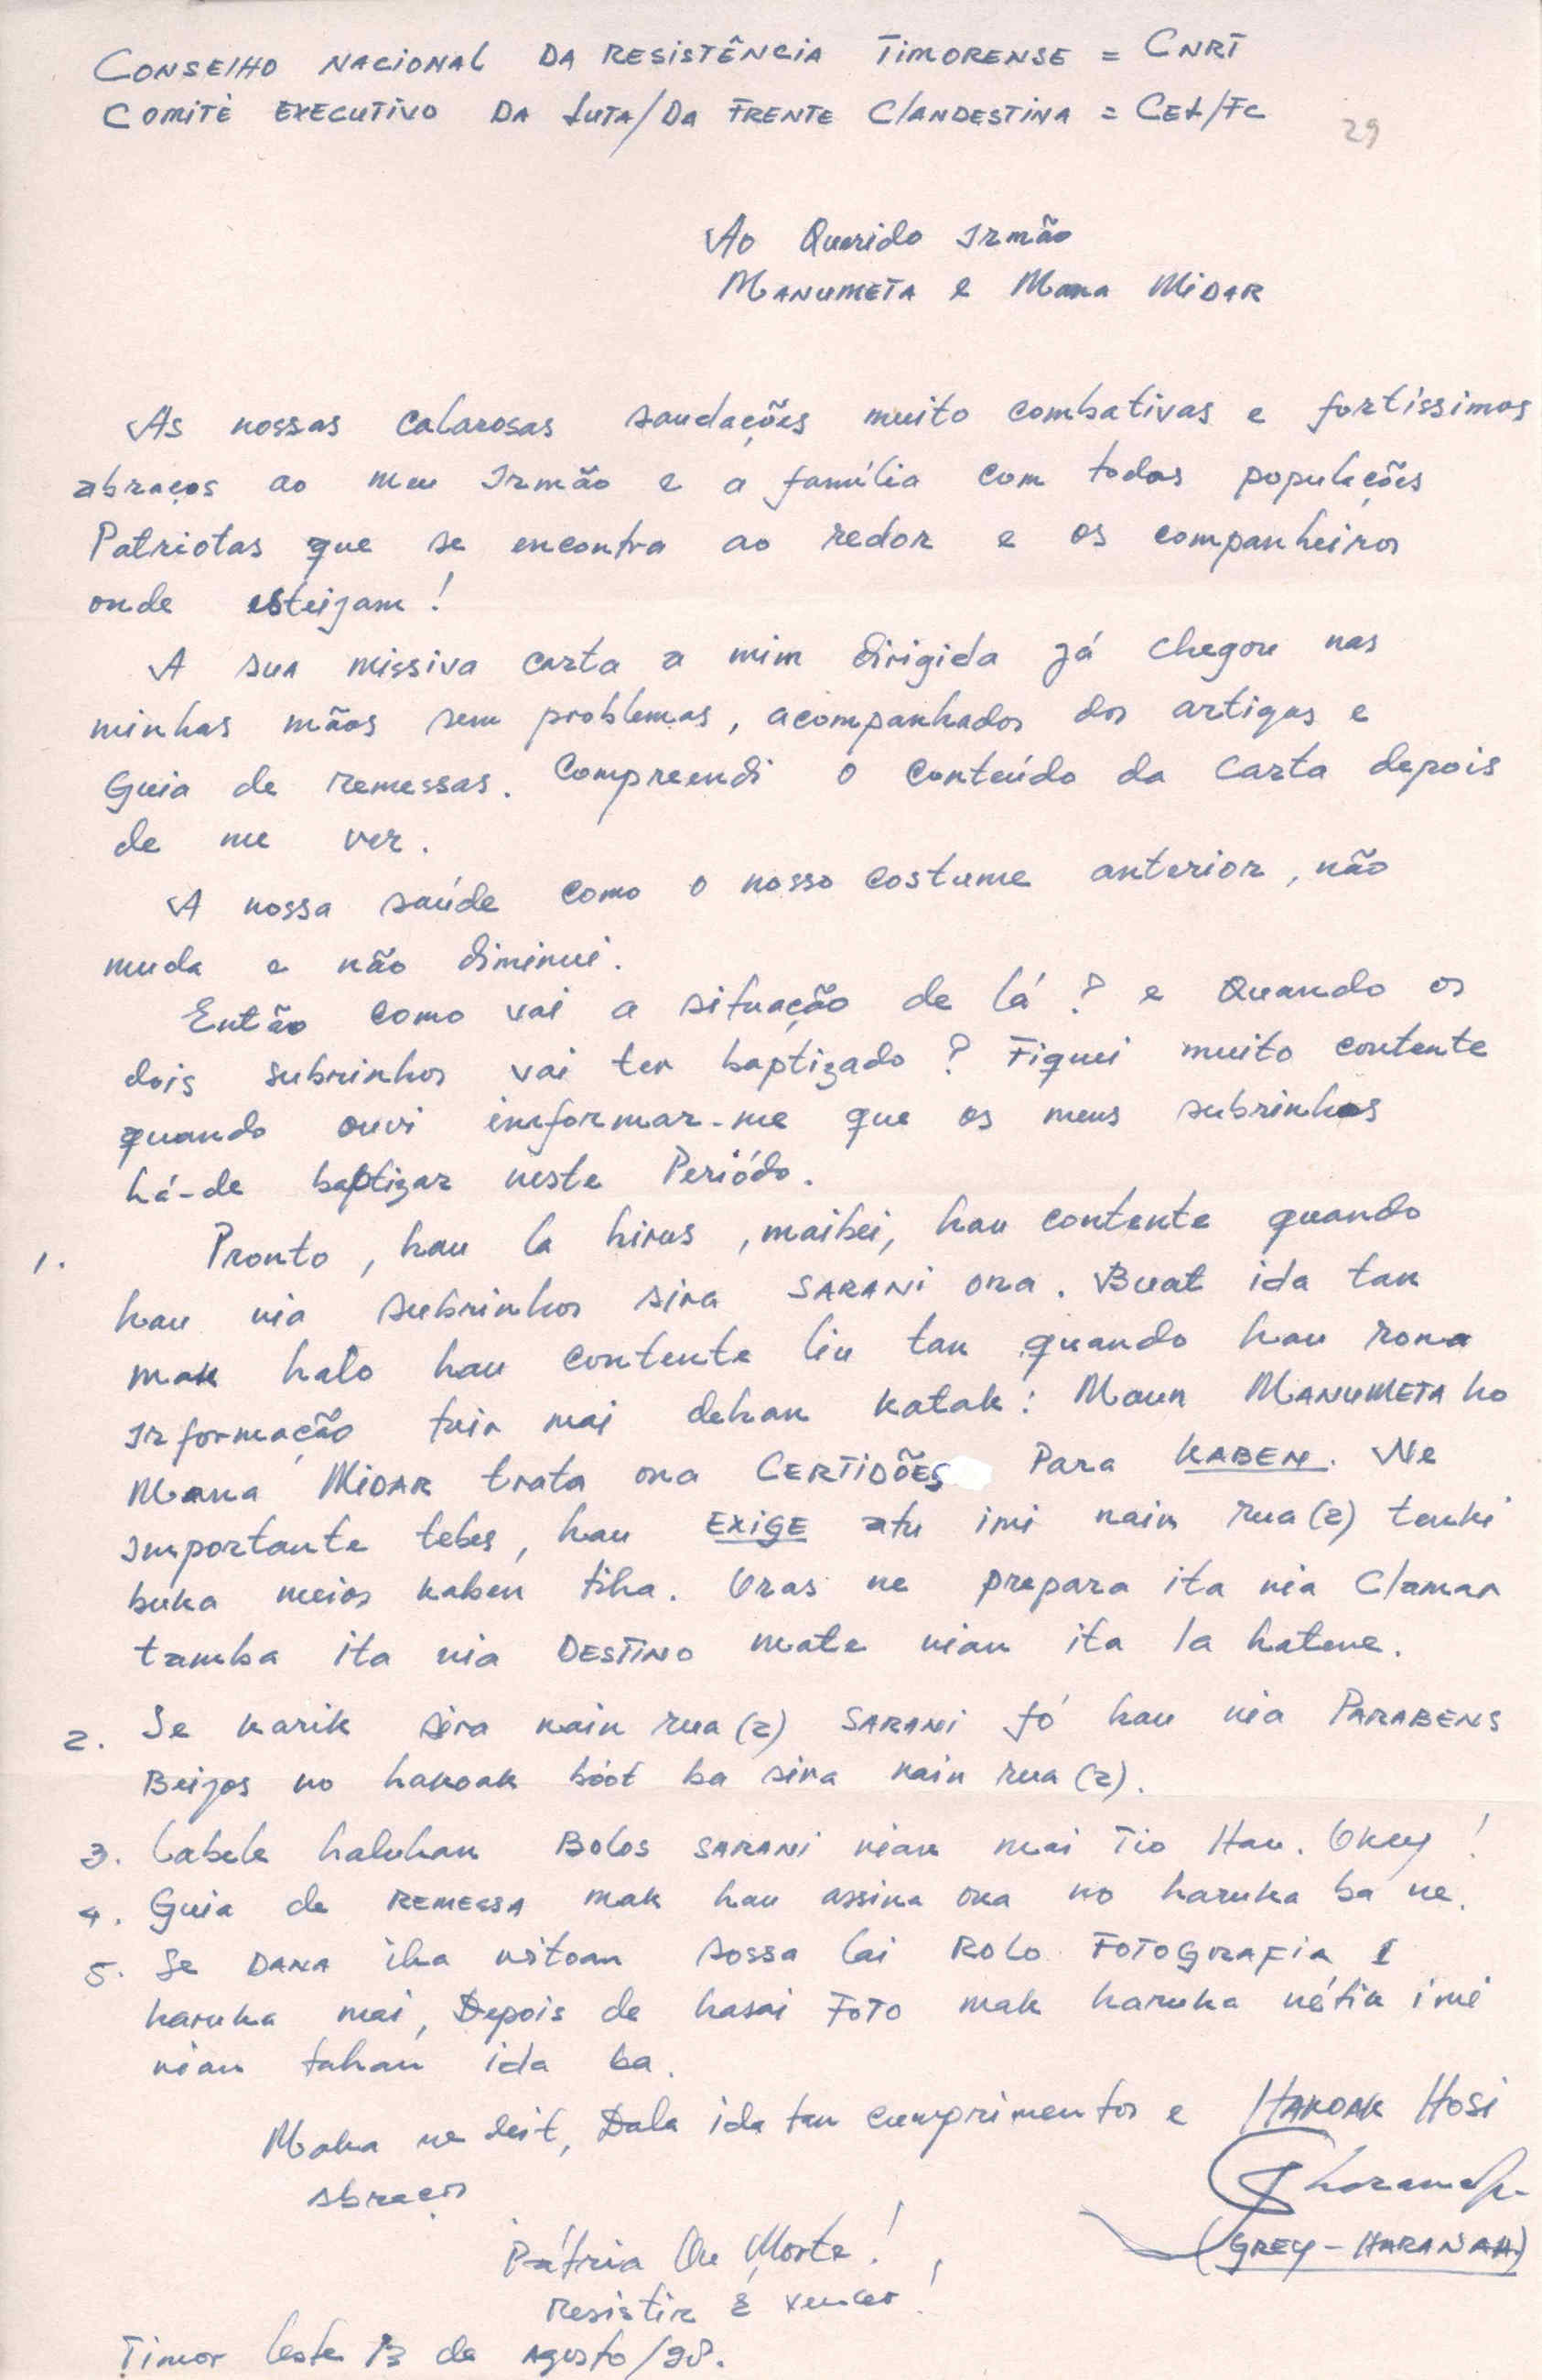 CONSELHO NACIONAL DA RESISTÊNCIA TIMORENSE = CNRT
COMITÈ EXECUTIVO DA LUTA/DA FRENTE CLANDESTINA = CEL/FC
29
Ao Querido Irmão
MANUMETA e Mana MIDAR
As nossas calarosas saudações muito combativas e fortissimos
abraços ao meu Irmão e a família com todas populações
Patriotas que se encontra ao redor e os companheiros
onde esteijam!
A sua missiva carta a mim dirigida já chegou nas
minhas mãos sem problemas, acompanhados dos artigos e
Guia de remessas. Compreendi o conteúdo da Carta depois
de me ver.
A nossa saúde como o nosso costume anterior, não
muda e não diminui.
Então como vai a situação de lá? e Quando os
dois subrinhos vai ter baptizado? Fiquei muito contente
quando ouvi informar-me que os meus subrinhos
há-de baptizar neste Periódo.
1. Pronto, hau la hirus, maibei, hau contente quando
hau nia subrinhos sira SARANI ona. Buat ida tan
mak halo hau contente liu tan quando hau rona
Informação tuir mai dehan katak: Maun MANUMETA ho
Mana MIDAR trata ona CERTIDÕES Para KABEN. Ne
Importante tebes, hau EXIGE atu imi nain rua (2) tenki
buka meios kaben tiha. Oras ne prepara ita nia Clamar
tamba ita nia DESTINO mate nian ita la hatene.
2. Se karik sira nain rua (2) SARANI fó hau nia PARABENS
Beijos no hakoak bóot ba sira nain rua (2).
3. Labele haluhan BOLOS SARANI nian mai Tio Hau. Okey!
4. Guia de REMESSA mak hau assina ona no haruka ba ne.
5. Se DANA iha nitoan sossa lai ROLO FOTOGRAFIA 1
haruka mai, Depois de hasai FOTO mak haruka nétik imi
nian tahan ida ba.
Maka ne deit, Dala ida tan cumprimentos e HAKOAK HOSI
abraços
(GREY-HARANAH)
Pátria Ou Morte!
Resistir É vencer!
Timor Leste 13 de Agosto/98.